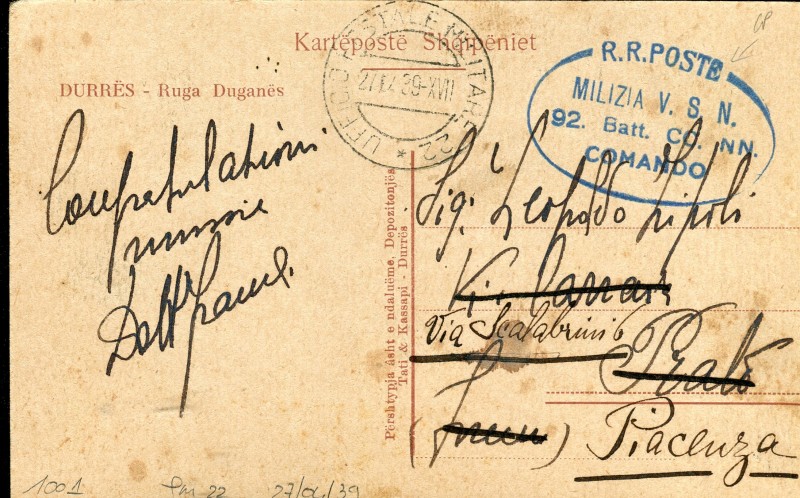 Kartëpostë Shqipëniet
DURRËS - Ruga Duganës
UFFICIO POSTALE MILITARE 22 *
27.04.39-XVII
R.R.POSTE
MILIZIA V. S. N.
92. Batt. CC. NN.
COMANDO
Congratulazioni
Dott.
Përshtypja àsht e ndaluëme, Depozitonjës
Tati & Kassapi - Durrës
Sig. Leopoldo Zipoli
Via
Via Scalabrini 6
Prato
Piacenza
1001
Pm 22
27/04/39